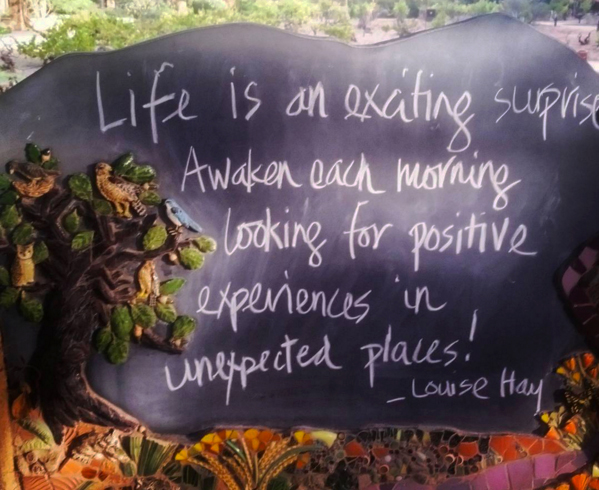 Life is an exciting surprise
Awaken each morning
looking for positive
experiences in
unexpected places!
- Louise Hay